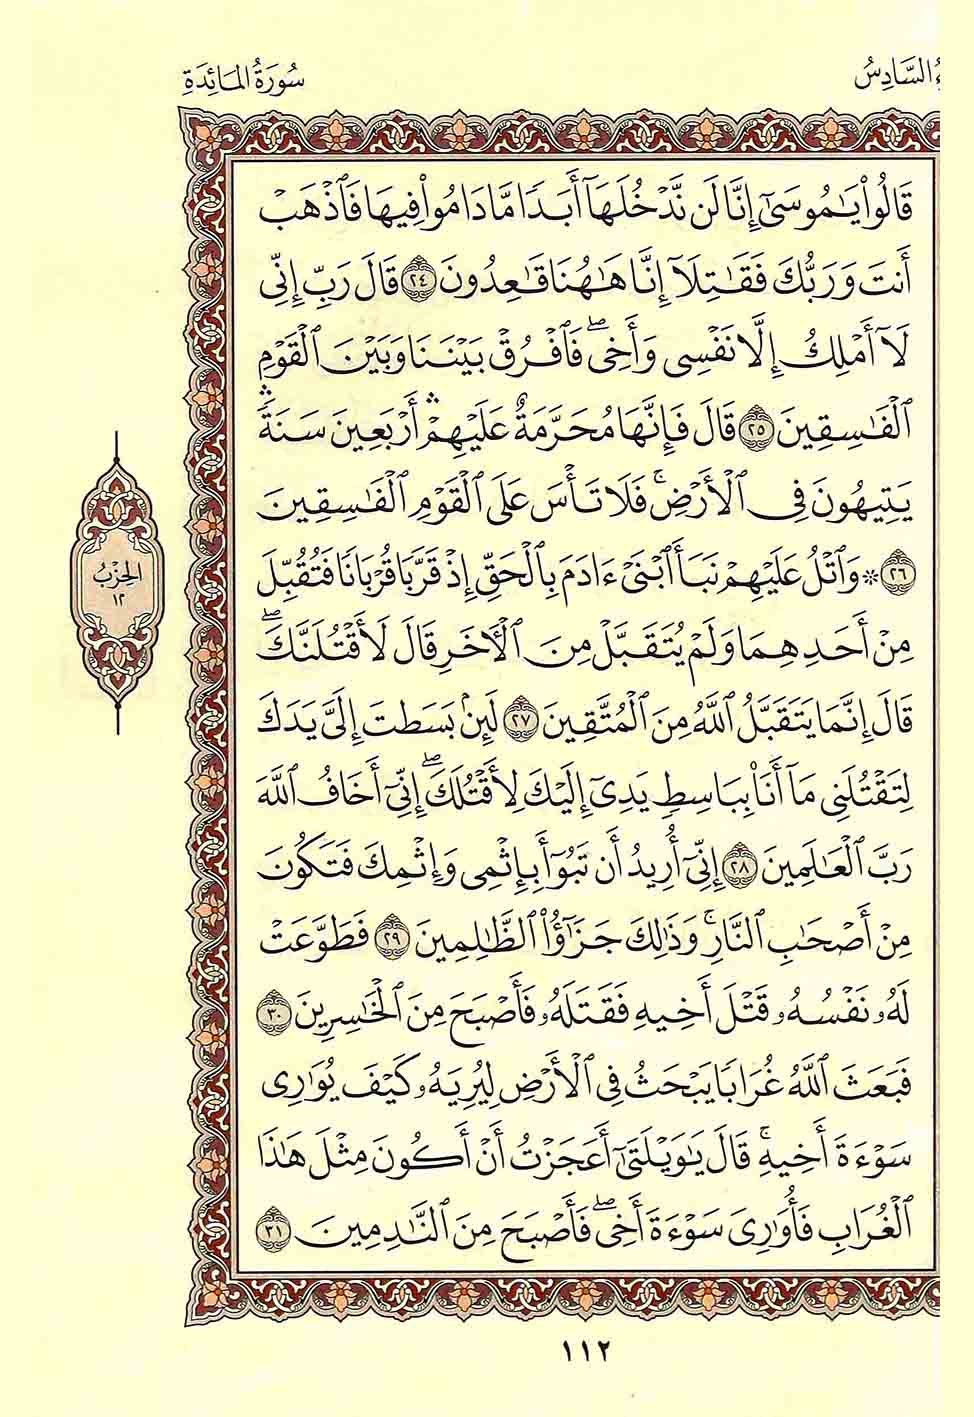 ءُ السَّادِسُ
سُورَةُ المَائِدَةِ
قَالُواْ يَٰمُوسَىٰٓ إِنَّا لَن نَّدۡخُلَهَآ أَبَدٗا مَّا دَامُواْ فِيهَا فَٱذۡهَبۡ
أَنتَ وَرَبُّكَ فَقَٰتِلَآ إِنَّا هَٰهُنَا قَٰعِدُونَ ٢٤ قَالَ رَبِّ إِنِّي
لَآ أَمۡلِكُ إِلَّا نَفۡسِي وَأَخِيۖ فَٱفۡرُقۡ بَيۡنَنَا وَبَيۡنَ ٱلۡقَوۡمِ
ٱلۡفَٰسِقِينَ ٢٥ قَالَ فَإِنَّهَا مُحَرَّمَةٌ عَلَيۡهِمۡۛ أَرۡبَعِينَ سَنَةٗۛ
يَتِيهُونَ فِي ٱلۡأَرۡضِۚ فَلَا تَأۡسَ عَلَى ٱلۡقَوۡمِ ٱلۡفَٰسِقِينَ
٢٦ ۞ وَٱتۡلُ عَلَيۡهِمۡ نَبَأَ ٱبۡنَيۡ ءَادَمَ بِٱلۡحَقِّ إِذۡ قَرَّبَا قُرۡبَانٗا فَتُقُبِّلَ
مِنۡ أَحَدِهِمَا وَلَمۡ يُتَقَبَّلۡ مِنَ ٱلۡأٓخَرِ قَالَ لَأَقۡتُلَنَّكَۖ
قَالَ إِنَّمَا يَتَقَبَّلُ ٱللَّهُ مِنَ ٱلۡمُتَّقِينَ ٢٧ لَئِنۢ بَسَطتَ إِلَيَّ يَدَكَ
لِتَقۡتُلَنِي مَآ أَنَا۠ بِبَاسِطٖ يَدِيَ إِلَيۡكَ لِأَقۡتُلَكَۖ إِنِّيٓ أَخَافُ ٱللَّهَ
رَبَّ ٱلۡعَٰلَمِينَ ٢٨ إِنِّيٓ أُرِيدُ أَن تَبُوٓأَ بِإِثۡمِي وَإِثۡمِكَ فَتَكُونَ
مِنۡ أَصۡحَٰبِ ٱلنَّارِۚ وَذَٰلِكَ جَزَٰٓؤُاْ ٱلظَّٰلِمِينَ ٢٩ فَطَوَّعَتۡ
لَهُۥ نَفۡسُهُۥ قَتۡلَ أَخِيهِ فَقَتَلَهُۥ فَأَصۡبَحَ مِنَ ٱلۡخَٰسِرِينَ ٣٠
فَبَعَثَ ٱللَّهُ غُرَابٗا يَبۡحَثُ فِي ٱلۡأَرۡضِ لِيُرِيَهُۥ كَيۡفَ يُوَٰرِي
سَوۡءَةَ أَخِيهِۚ قَالَ يَٰوَيۡلَتَىٰٓ أَعَجَزۡتُ أَنۡ أَكُونَ مِثۡلَ هَٰذَا
ٱلۡغُرَابِ فَأُوَٰرِيَ سَوۡءَةَ أَخِيۖ فَأَصۡبَحَ مِنَ ٱلنَّٰدِمِينَ ٣١
الحِزْبُ
١٢
١١٢